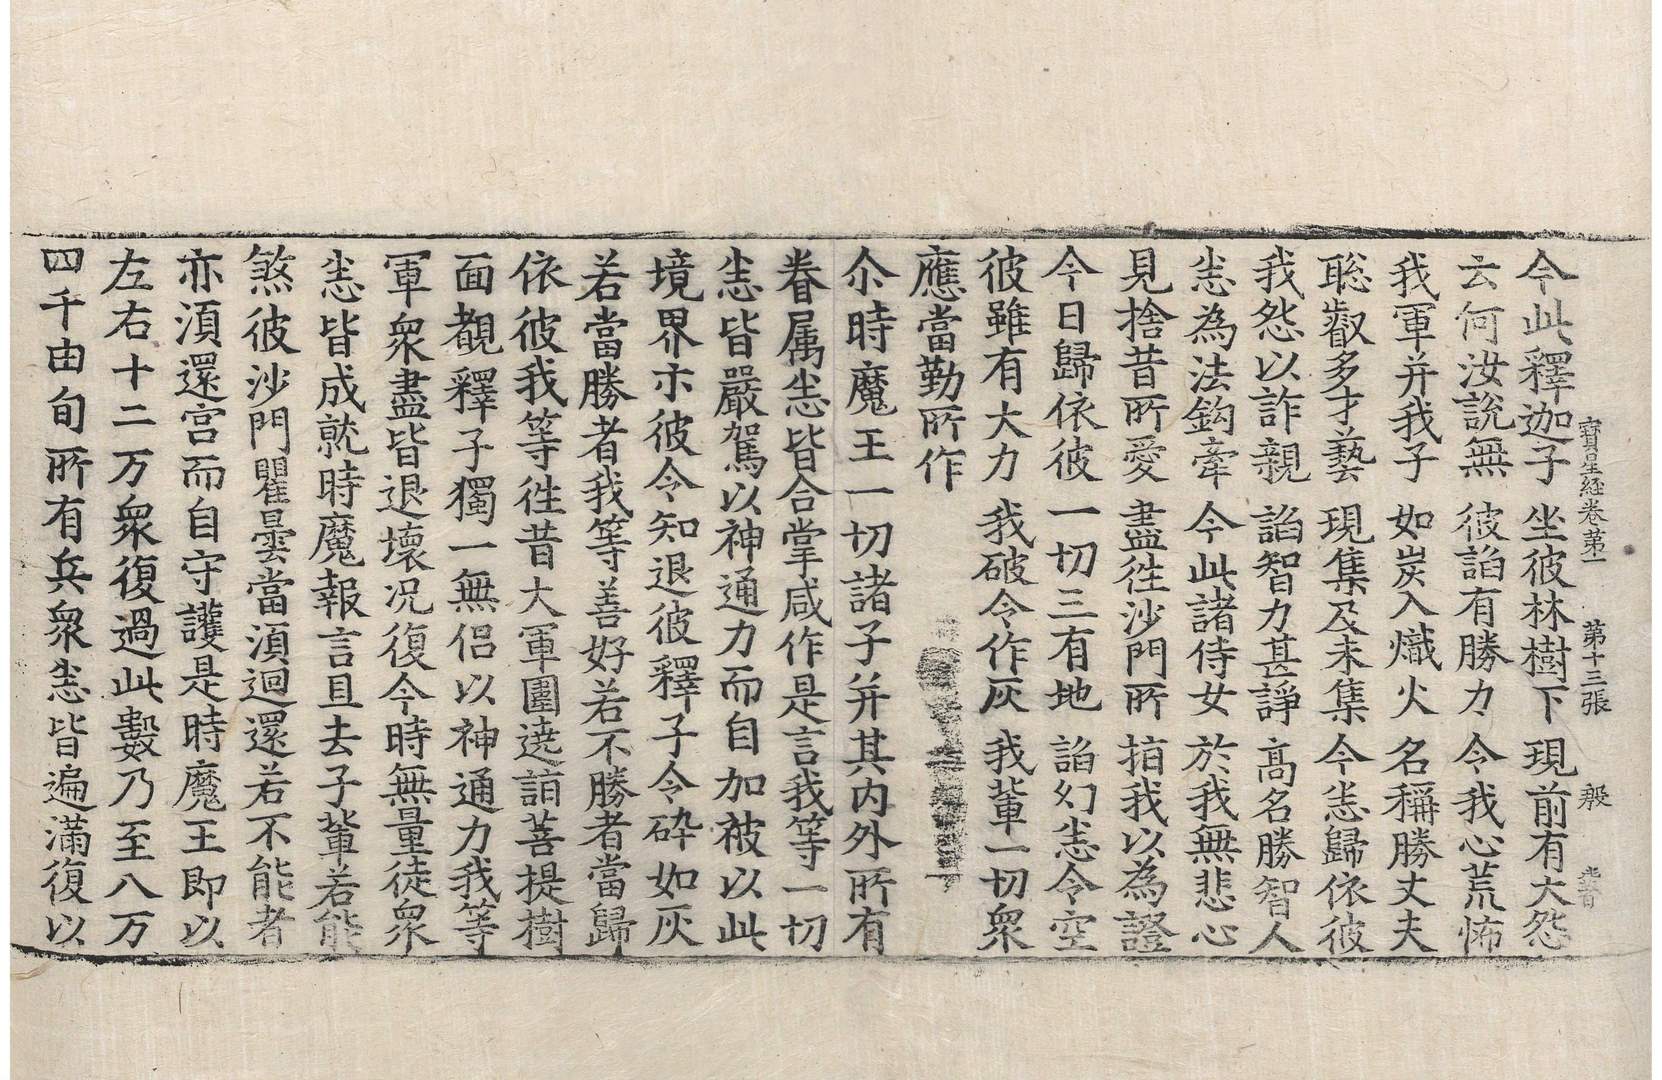 寶星経卷第一 第十三張 般
今此釋迦子 坐彼林樹下 現前有大怨
云何汝說無 彼諂有勝力 令我心荒怖
我軍并我子 如炭入熾火 名稱勝丈夫
聡叡多才藝 現集及未集 今恙歸依彼
我怨以詐親 諂智力甚諍 高名勝智人
恙為法鈎牽 今此諸侍女 於我無悲心
見捨昔所愛 盡徃沙門所 拍我以為證
今日歸依彼 一切三有地 諂幻恙令空
彼雖有大力 我破令作灰 我軰一切衆
應當勤所作
尒時魔王一切諸子并其内外所有
眷属恙皆合掌咸作是言我等一切
恙皆嚴駕以神通力而自加被以此
境界示彼令知退彼釋子令碎如灰
若當勝者我等善好若不勝者當歸
依彼我等徃昔大軍圍遶詣菩提樹
面覩釋子獨一無侣以神通力我等
軍衆盡皆退壞况復今時無量徒衆
恙皆成就時魔報言且去子軰若能
煞彼沙門瞿曇當湏迴還若不能者
亦湏還宫而自守護是時魔王即以
左右十二万衆復過此數乃至八万
四千由旬所有兵衆恙皆遍滿復以